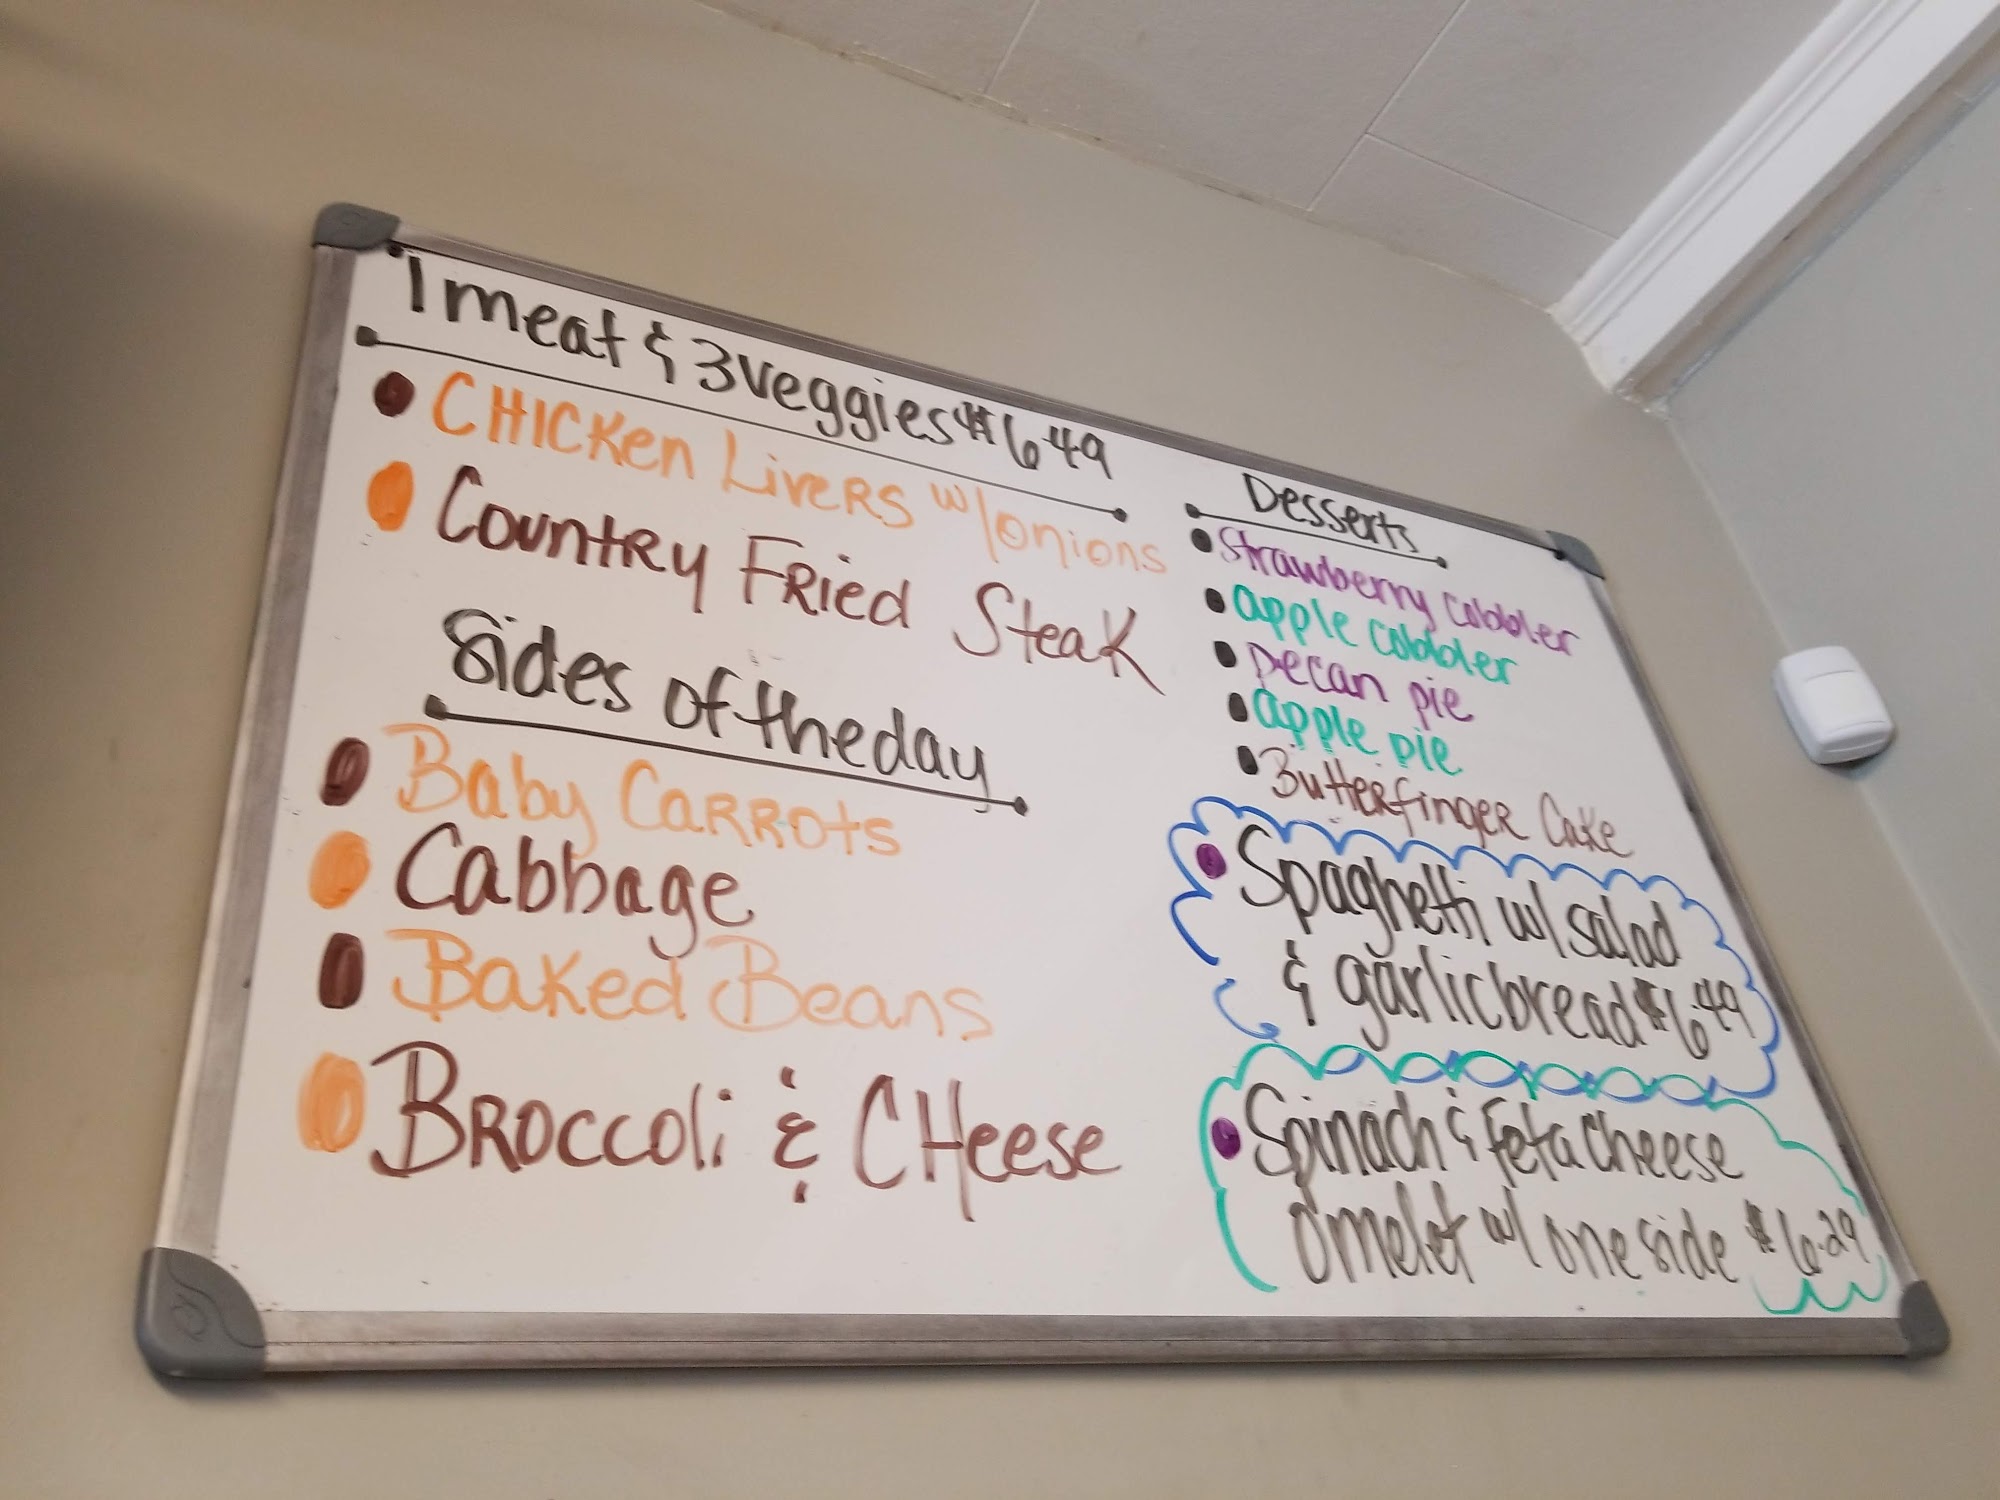 1 meat & 3 veggies $6.49
CHICKen LiveRS w/onions
CountRy FRied Steak
Sides of the day
Baby CaRROts
Cabbage
Baked Beans
BROccoli & CHeese
Desserts
Strawberry cobbler
apple cobbler
pecan pie
apple pie
ButterfingeR Cake
Spaghetti w/ salad
& garlic bread $6.49
Spinach & Feta cheese
omelet w/ one side $6.29